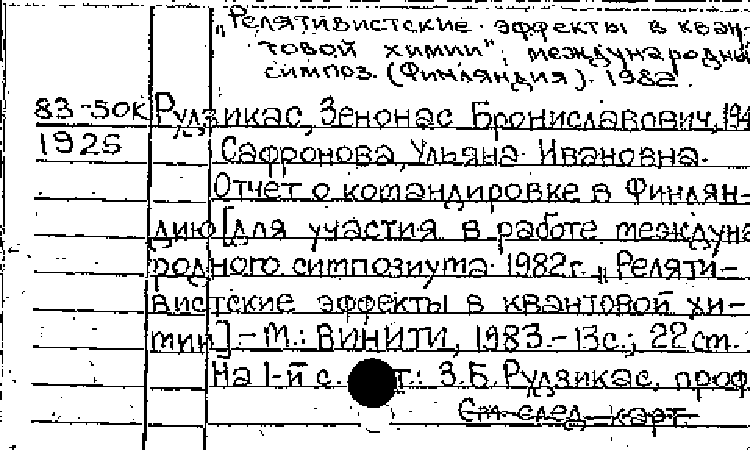 „Релятивистские эффекты в кван-
товой химии", международный
симпоз. (Финляндия). 1982.
83-50К Рудзикас, Зенонас Брониславович, 194
1925 Сафронова, Ульяна Ивановна.
Отчет о командировке в Финлян-
дию [для участия в работе междуна
родного симпозиума 1982г. „Реляти-
вистские эффекты в квантовой хи-
мии]. - М.: ВИНИТИ, 1983. - 13с.; 22см.
На 1-й с. т.: З.Б. Рудзикас, проф
См. след. карт.